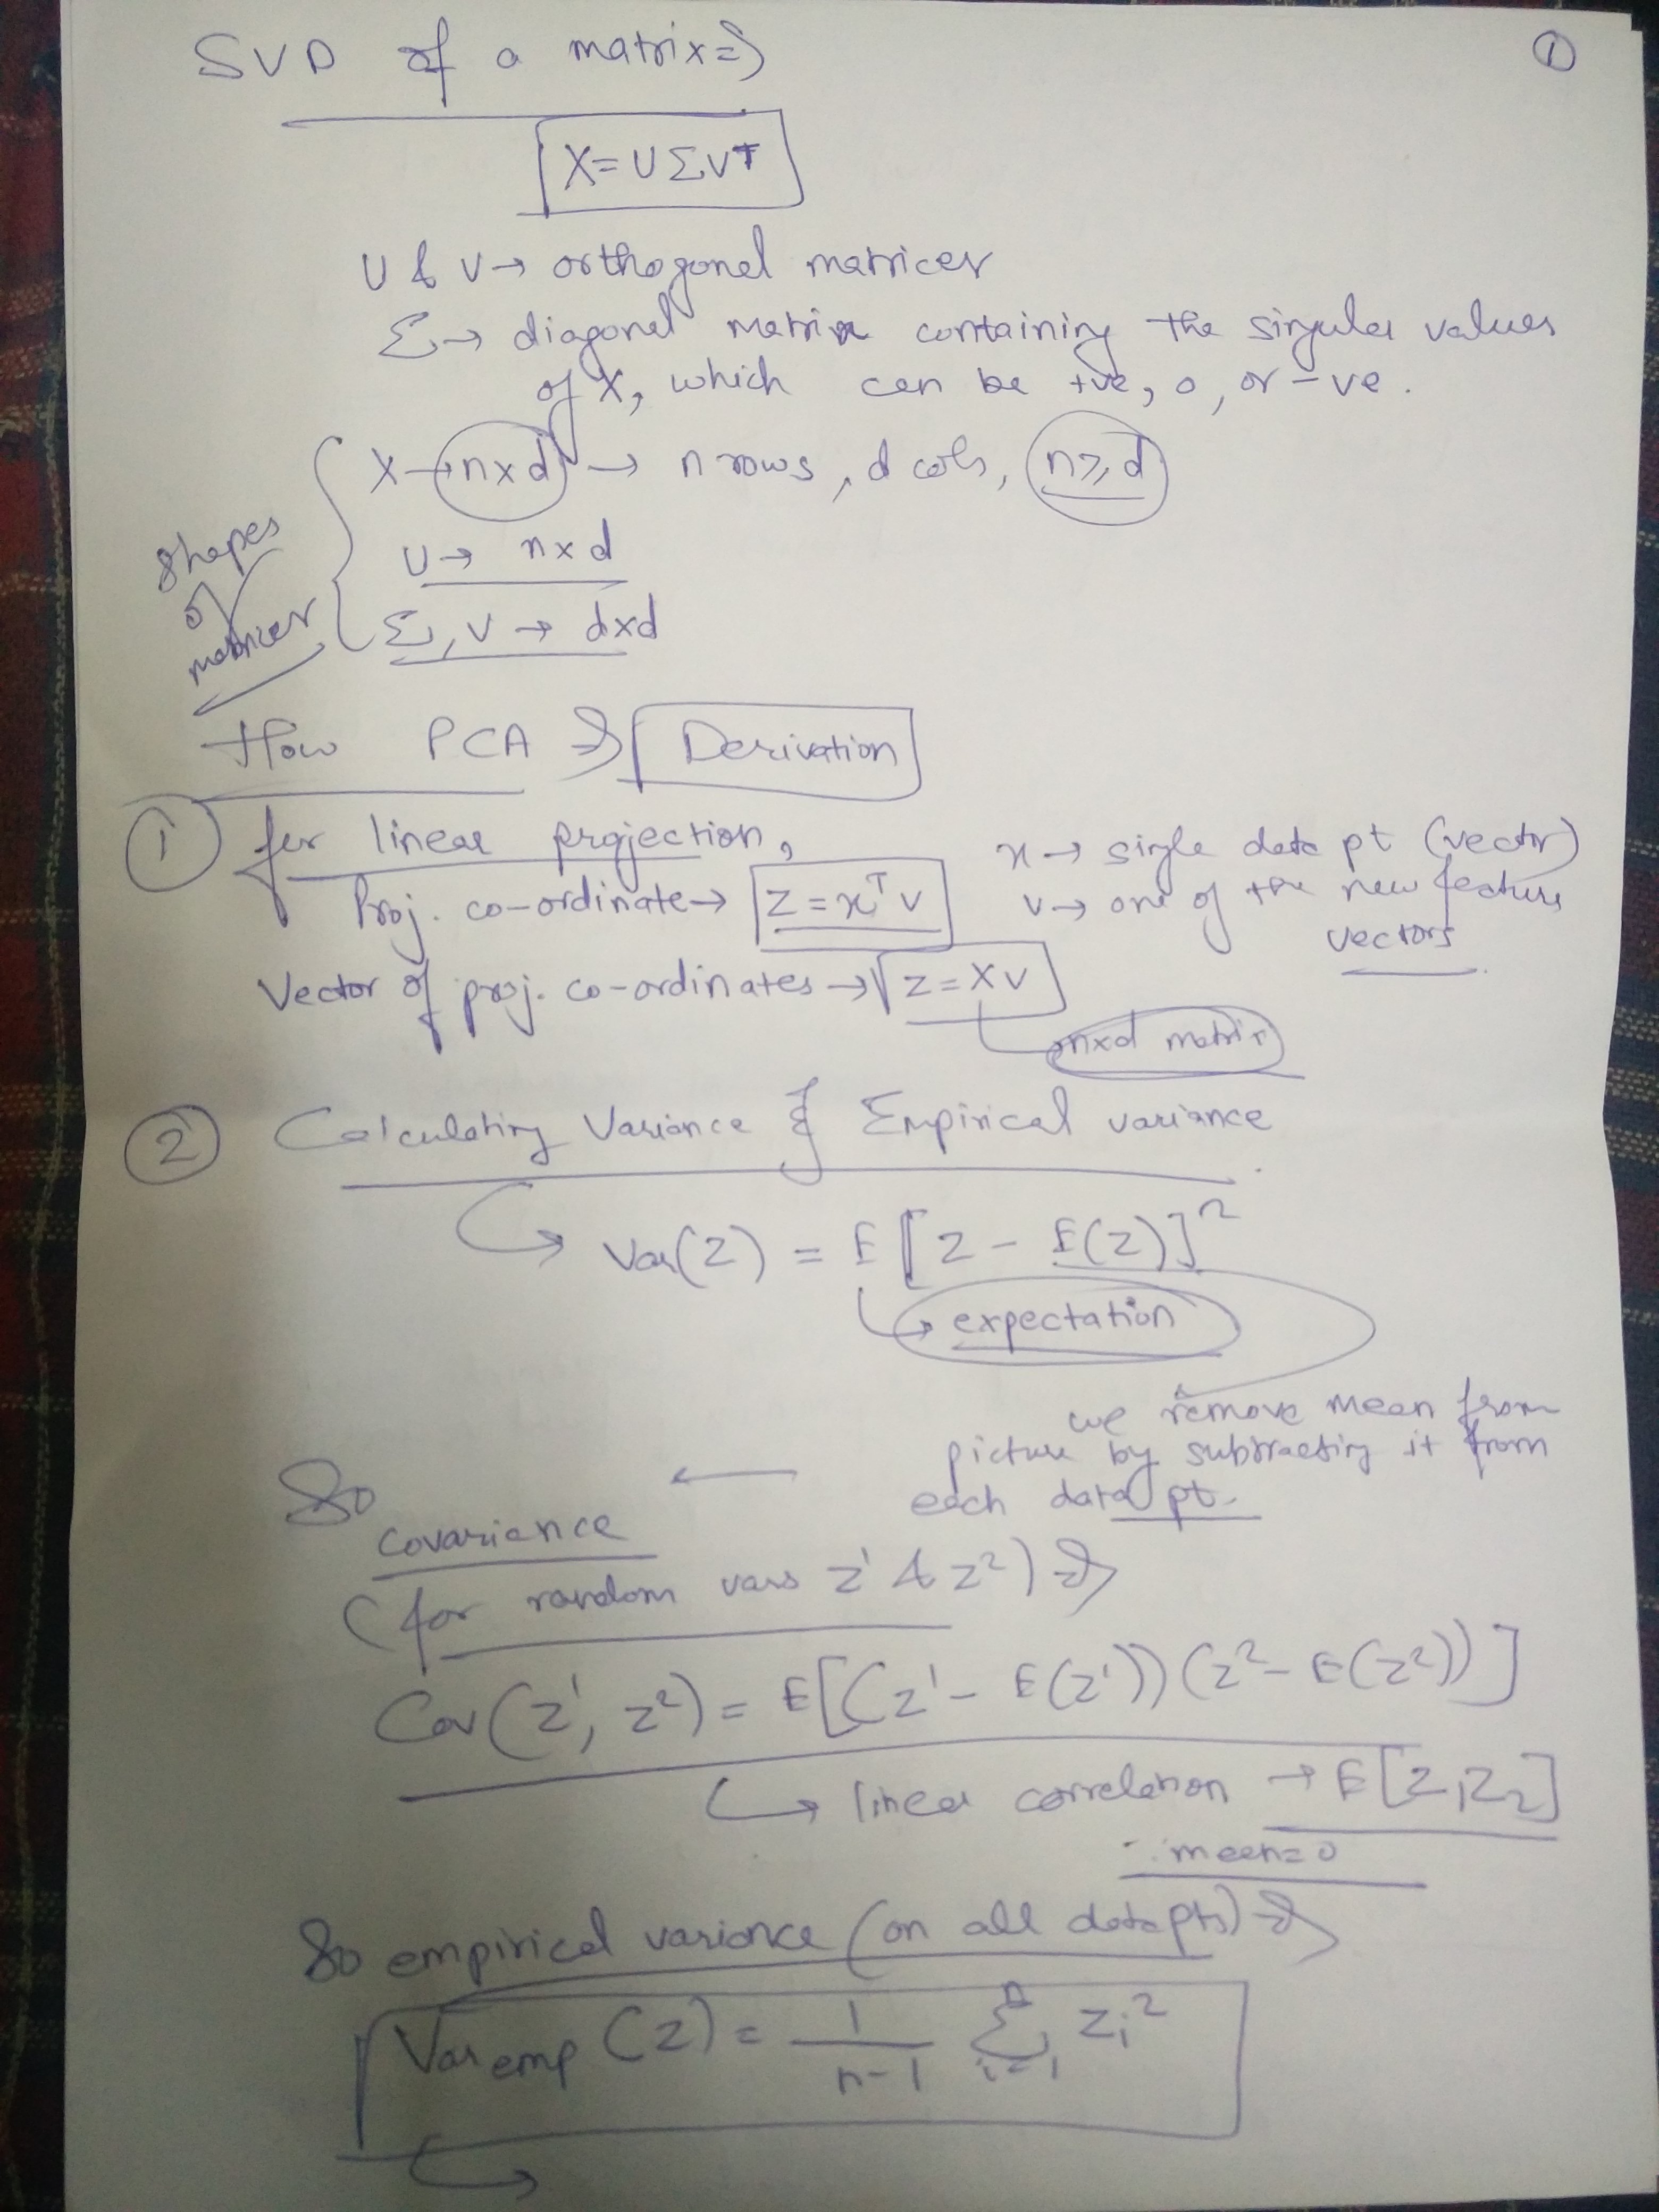 SVD of a matrix ⇒
①
X = U Σ V^T
U & V → orthogonal matrices
Σ → diagonal matrix containing the singular values
of X, which can be +ve, 0, or -ve.
Shapes of matrices
X → n x d → n rows, d cols, n ≥ d
U → n x d
Σ, V → d x d
How PCA ⇒ Derivation
① for linear projection,
Proj. co-ordinate → z = x^T v
x → single data pt (vector)
v → one of the new feature
vectors
Vector of proj. co-ordinates → z = X v
n x d matrix
② Calculating Variance & Empirical variance
↪ Var(Z) = E[Z - E(Z)]²
↪ expectation
we remove mean from
picture by subtracting it from
each data pt.
So ←
covariance
(for random vars z¹ & z²) ⇒
Cov(z¹, z²) = E[(z¹ - E(z¹))(z² - E(z²))]
↪ linear correlation → E[Z₁Z₂]
∵ mean = 0
So empirical variance (on all data pts) ⇒
Var emp (Z) = 1/(n-1) Σ_{i=1}^{n} z_i²
↪